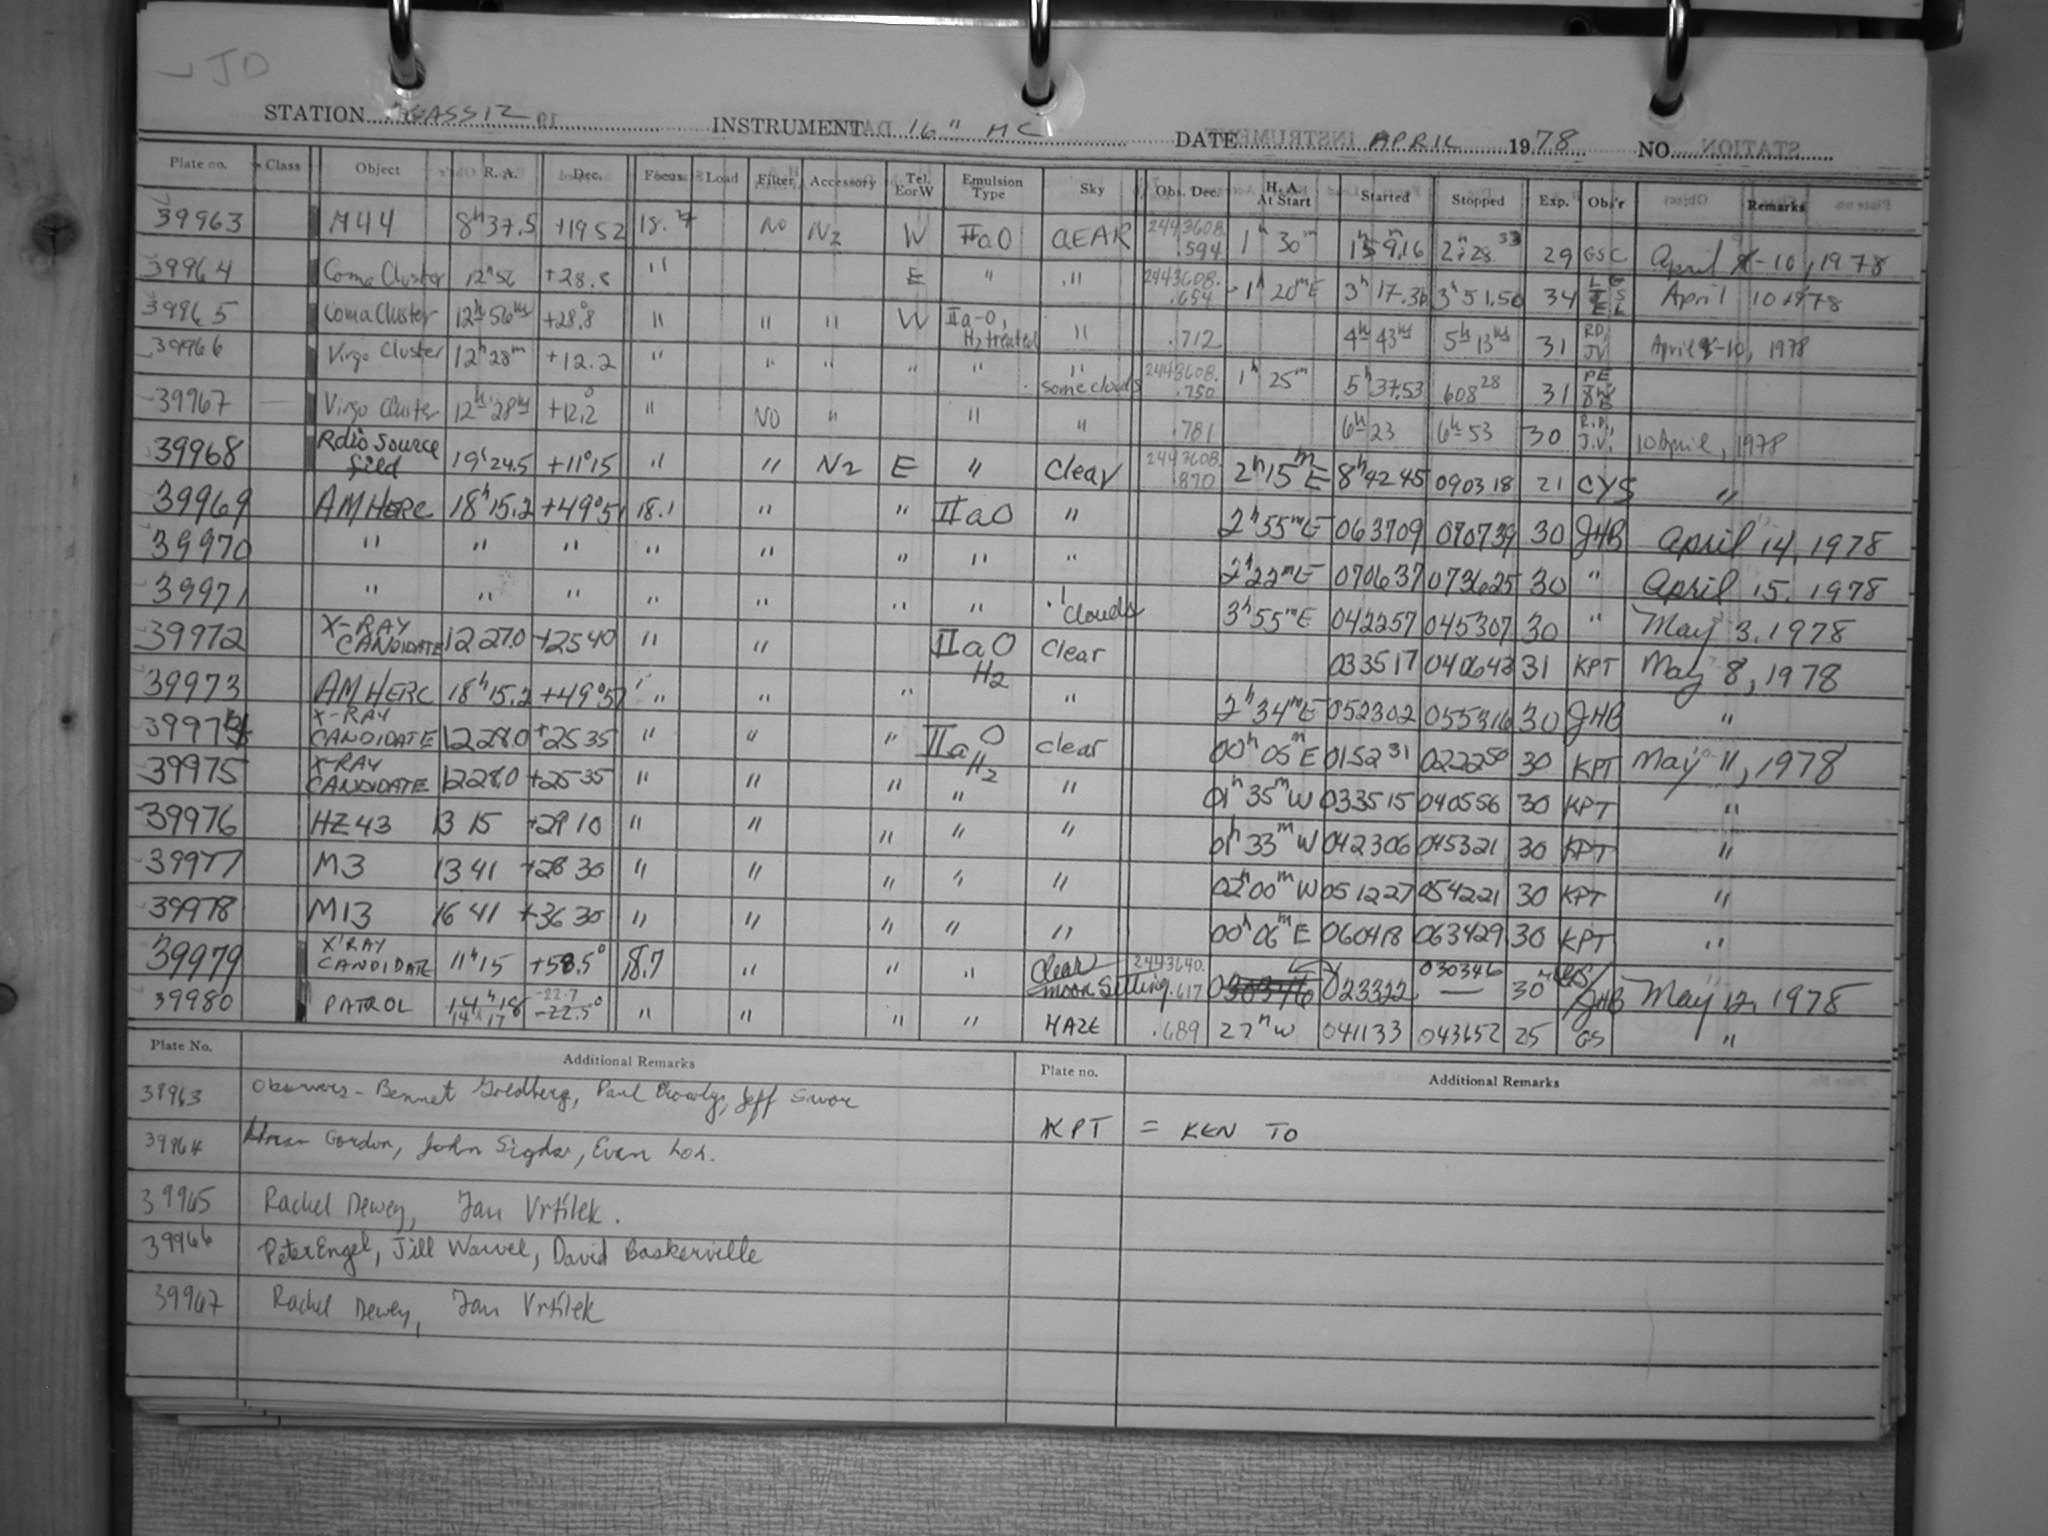 JD
STATION AGASSIZ INSTRUMENT 16" MC DATE APRIL 1978 NO.
Plate no. Class Object R. A. Dec. Focus Load Filter Accessory Tel. E or W Emulsion Type Sky Obs. Dec. H. A. At Start Started Stopped Exp. Obs'r Remarks
39963 M44 8h37.5 +19 52 18.7 No N2 W IIaO CLEAR 2443608.594 1h 30m 1h59m16 2h28 33 29 GSC April 9-10, 1978
39964 Coma Cluster 12h56 +28.8 " E " " 2443608.654 -1h 20mE 3h 17.36 3h 51.50 34 April 10 1978
39965 Coma Cluster 12h56m +28.8° " " " W IIa-O, H2 treated " .712 4h 43m 5h 13m 31 RD, JV April 9-10, 1978
39966 Virgo Cluster 12h28m +12.2 " " " " " " some clouds 2443608.750 1h 25m 5h 37.53 608 28 31 PE JW DB
39967 Virgo Cluster 12h 28m +12.2° " NO " " " .781 6h 23 6h 53 30 R.D., J.V. 10 April, 1978
39968 Rdio Source field 19h24.5 +11°15 " " N2 E " Clear 2443608.870 2h15mE 8h42 45 0903 18 21 CYS "
39969 AM HERC 18h15.2 +49°51 18.1 " " IIaO " 2h55mE 063709 070739 30 JHB April 14, 1978
39970 " " " " " " " " 2h22mE 070637 073625 30 " April 15, 1978
39971 " " " " " " " " Clouds 3h55mE 042257 045307 30 " May 3, 1978
39972 X-RAY CANDIDATE 12 27.0 +25 40 " " IIaO H2 Clear 033517 040643 31 KPT May 8, 1978
39973 AM HERC 18h15.2 +49°51 " " " " 2h34mE 052302 055316 30 JHB "
39974 X-RAY CANDIDATE 12 28.0 +25 35 " " " IIaO H2 Clear 00h 05mE 0152 31 0222 50 30 KPT May 11, 1978
39975 X-RAY CANDIDATE 12 28.0 +25 35 " " " " " 01h 35mW 033515 040556 30 KPT "
39976 HZ 43 13 15 +29 10 " " " " " 01h 33mW 042306 045321 30 KPT "
39977 M3 13 41 +28 30 " " " " " 02h 00mW 051227 054221 30 KPT "
39978 M13 16 41 +36 30 " " " " " 00h 06mE 060418 063429 30 KPT "
39979 X-RAY CANDIDATE 11h15 +58.5° 18.7 " " " Clear moon Setting 2443640.617 030346 023322 030346 30m GS/JHB May 12, 1978
39980 PATROL 14h18 14h17 -22.7 -22.5° " " " " HAZE .689 041133 043652 25 GS "
Plate No. Additional Remarks Plate no. Additional Remarks
39963 Observers - Bennet Goldberg, Paul
39964 Gordon, John Evan KPT = KEN TO
39965 Rachel Dewey, Jan Vrtilek.
39966 Peter Engel, Jill Warvel, David Baskerville
39967 Rachel Dewey, Jan Vrtilek